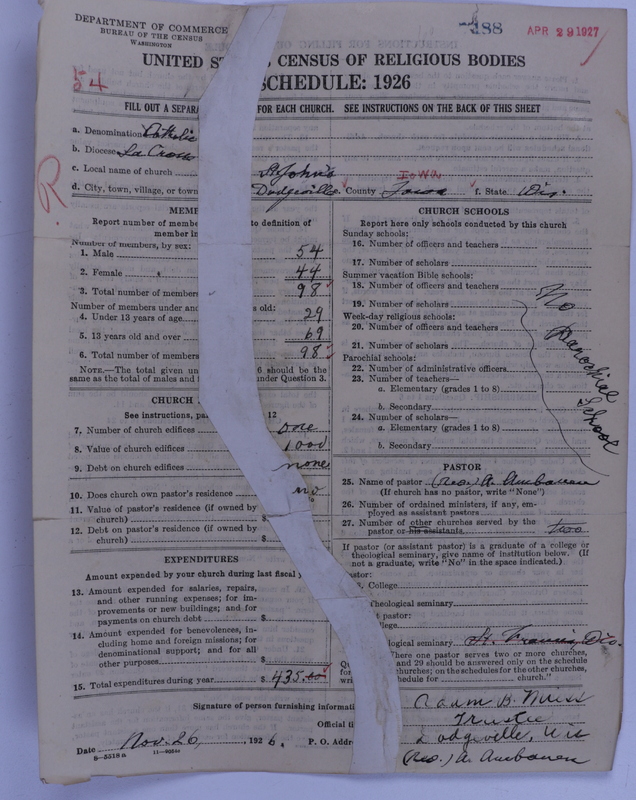 DEPARTMENT OF COMMERCE
BUREAU OF THE CENSUS
WASHINGTON
188
APR 29 1927
UNITED S S CENSUS OF RELIGIOUS BODIES
SCHEDULE: 1926
54
FILL OUT A SEPARA FOR EACH CHURCH. SEE INSTRUCTIONS ON THE BACK OF THIS SHEET
a. Denomination Catholic
b. Diocese La Crosse
c. Local name of church St John's
R
IOWA
d. City, town, village, or town Dodgeville. County Iowa f. State Wis.
MEM
Report number of member to definition of
member in
Number of members, by sex:
1. Male 54
2. Female 44
3. Total number of member 98
Number of members under and s old:
4. Under 13 years of age 29
5. 13 years old and over 69
6. Total number of members 98
NOTE.—The total given un 6 should be the
same as the total of males and f under Question 3.
CHURCH
See instructions, pa 12
7. Number of church edifices one
8. Value of church edifices 1000
9. Debt on church edifices none
10. Does church own pastor's residence no
11. Value of pastor's residence (if owned by
church) $
12. Debt on pastor's residence (if owned by
church) $
EXPENDITURES
Amount expended by your church during last fiscal y
13. Amount expended for salaries, repairs,
and other running expenses; for im-
provements or new buildings; and for
payments on church debt $
14. Amount expended for benevolences, in-
cluding home and foreign missions; for
denominational support; and for all
other purposes $
15. Total expenditures during year $ 435.00
CHURCH SCHOOLS
Report here only schools conducted by this church
Sunday schools:
16. Number of officers and teachers
17. Number of scholars
Summer vacation Bible schools:
18. Number of officers and teachers
19. Number of scholars
Week-day religious schools:
20. Number of officers and teachers
21. Number of scholars
Parochial schools:
22. Number of administrative officers
23. Number of teachers—
a. Elementary (grades 1 to 8)
b. Secondary
24. Number of scholars—
a. Elementary (grades 1 to 8)
b. Secondary
No Parochial School
PASTOR
25. Name of pastor (Rev.) A.
(If church has no pastor, write "None")
26. Number of ordained ministers, if any, em-
ployed as assistant pastors
27. Number of other churches served by the
pastor or his assistants two
If pastor (or assistant pastor) is a graduate of a college or
theological seminary, give name of institution below. (If
not a graduate, write "No" in the space indicated.)
stor:
College
Theological seminary
t pastor:
llege
logical seminary St. Francis, Wis.
here one pastor serves two or more churches,
Qu and 29 should be answered only on the schedule
for churches; on the schedules for the other churches,
wri hedule for church."
Signature of person furnishing informati
Official ti Trustee
Date Nov. 26, 1926. P. O. Addre Dodgeville, Wis
8-5518a 11-9054
(Rev.) A.